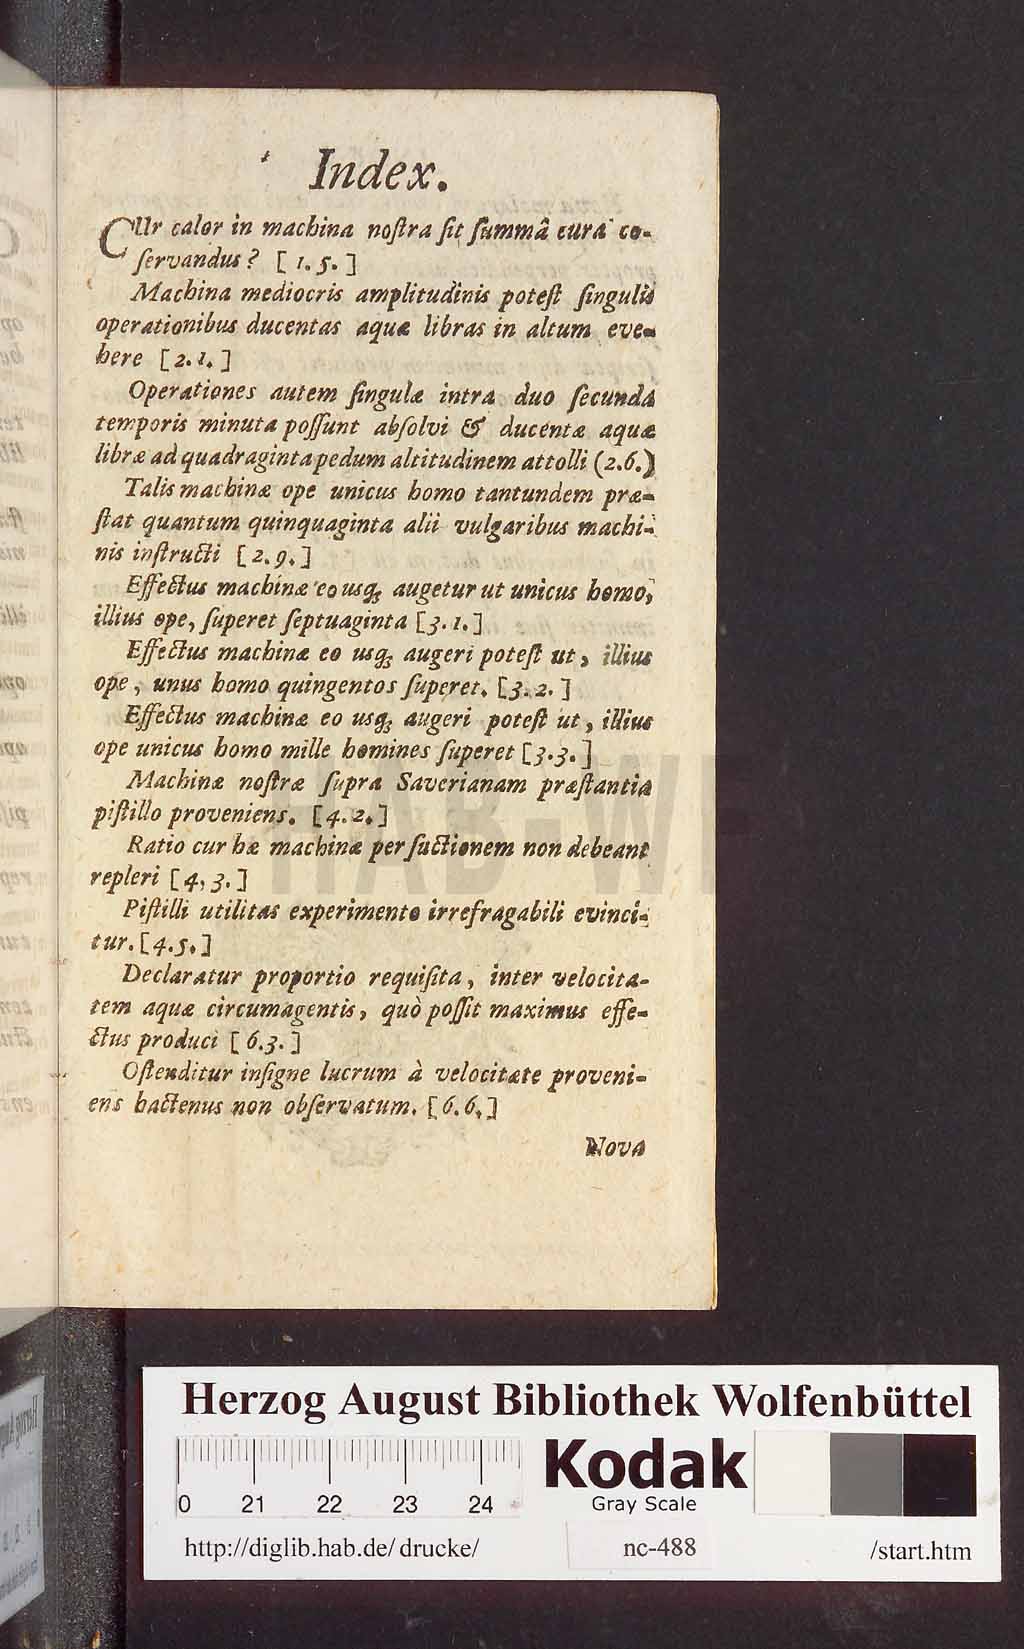 Index.
CUr calor in machina noſtra ſit ſummâ cura co-
ſervandus? [1.5.]
Machina mediocris amplitudinis poteſt ſingulis
operationibus ducentas aquæ libras in altum eve-
here [2.1.]
Operationes autem ſingulæ intra duo ſecunda
temporis minuta poſſunt abſolvi & ducentæ aquæ
libræ ad quadraginta pedum altitudinem attolli (2.6.)
Talis machinæ ope unicus homo tantundem præ-
ſtat quantum quinquaginta alii vulgaribus machi-
nis inſtructi [2.9.]
Effectus machinæ eo uſq; augetur ut unicus homo,
illius ope, ſuperet ſeptuaginta [3.1.]
Effectus machinæ eo usq; augeri poteſt ut, illius
ope, unus homo quingentos ſuperet. [3.2.]
Effectus machinæ eo usq; augeri poteſt ut, illius
ope unicus homo mille homines ſuperet [3.3.]
Machinæ noſtræ ſupra Saverianam præſtantia
piſtillo proveniens. [4.2.]
Ratio cur hæ machinæ per ſuctionem non debeant
repleri [4,3.]
Piſtilli utilitas experimento irrefragabili evinci-
tur. [4.5.]
Declaratur proportio requiſita, inter velocita-
tem aquæ circumagentis, quò poſſit maximus effe-
ctus produci [6.3.]
Oſtenditur inſigne lucrum à velocitate proveni-
ens hactenus non obſervatum. [6.6.]
Nova
HAB-W
Herzog August Bibliothek Wolfenbüttel
0 21 22 23 24
Kodak
Gray Scale
http://diglib.hab.de/ drucke/ nc-488 /start.htm